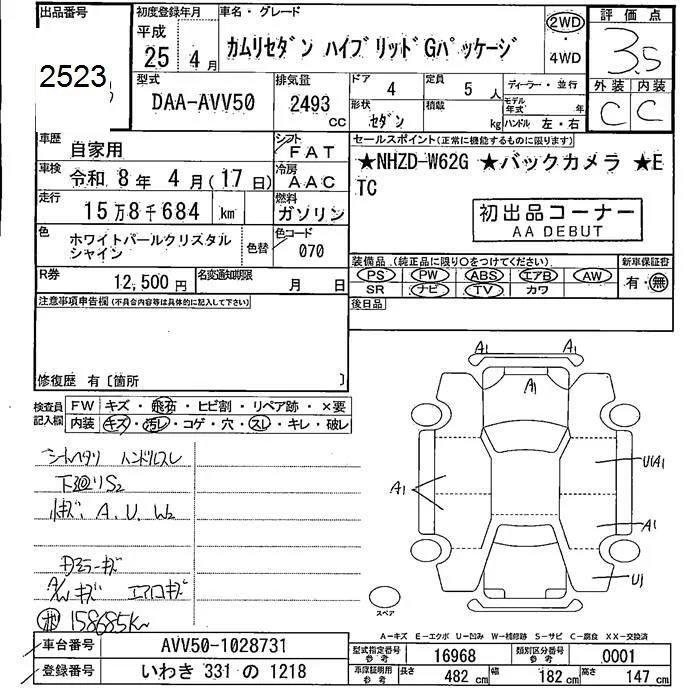 出品番号
2523
初度登録年月
平成
25年 4月
車名・グレード
カムリセダン ハイブリッドGパッケージ
2WD
・
4WD
評価点
3.5
外装 内装
C C
型式
DAA-AVV50
排気量
2493
CC
ドア
4
定員
5 人
ディーラー・並行
形状
セダン
積載
kg
モデル年式 年
ハンドル 左・右
車歴
自家用
シフト
FAT
車検
令和 8年 4月(17日)
冷房
AAC
走行
15万8千684 km
燃料
ガソリン
色
ホワイトパールクリスタル
シャイン
色替
色コード
070
R券
12,500円
名変通知期限
月 日
セールスポイント(正常に機能するものに限ります)
★NHZD-W62G ★バックカメラ ★E
TC
初出品コーナー
AA DEBUT
装備品 (純正品に限り○をつけてください)
新車保証書
PS PW ABS エアB AW
有・無
SR ナビ TV カワ
後日品
注意事項申告欄(不具合内容等は具体的に記入して下さい)
修復歴 有〔箇所 〕
検査員
記入欄
FW キズ・飛石・ヒビ割・リペア跡・×要
内装 キズ・汚レ・コゲ・穴・スレ・キレ・破レ
シートヘタリ ハンドルスレ
下廻りS2
A. U. W2
ドアミラーキズ
A/Wキズ エアロキズ
158685km
A1
A1
A1
A1
U1A1
A1
U1
スペア
A-キズ E-エクボ U-凹み W-補修跡 S-サビ C-腐食 XX-交換済
車台番号
AVV50-1028731
登録番号
いわき 331 の 1218
型式指定番号
参考
16968
類別区分番号
参考
0001
車庫証明用
参考
長さ
482 cm
幅
182 cm
高さ
147 cm